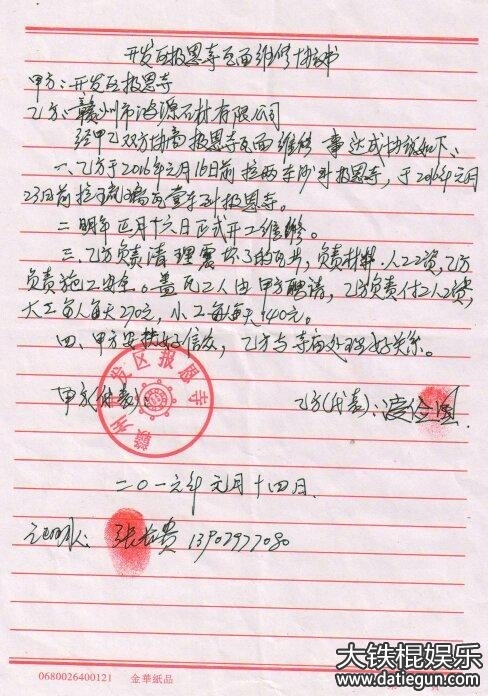 开发区报恩寺瓦面维修协议书
甲方：开发区报恩寺
乙方：赣州市 源石材有限公司
经甲乙双方协商报恩寺瓦面维修一事达成协议如下：
一、乙方于2016年元月16日前拉两车沙到报恩寺，于2016年元月
23日前拉 瓦 车到报恩寺。
二、明年正月十六日正式开工维修。
三、乙方负责清理震坏了的瓦片，负责材料、人工工资，乙方
负责施工安全。盖瓦工人由甲方聘请，乙方负责付工人工资，
大工每人每天270元，小工每人每天140元。
四、甲方安抚好信众，乙方与寺 处理好关系。
甲方（代表）：
乙方（代表）：
赣州 发区报恩寺
二0一六年元月十四日
证明人：张 贵 13707977080
0680026400121 金華紙品
大铁棍娱乐
www.datiegun.com